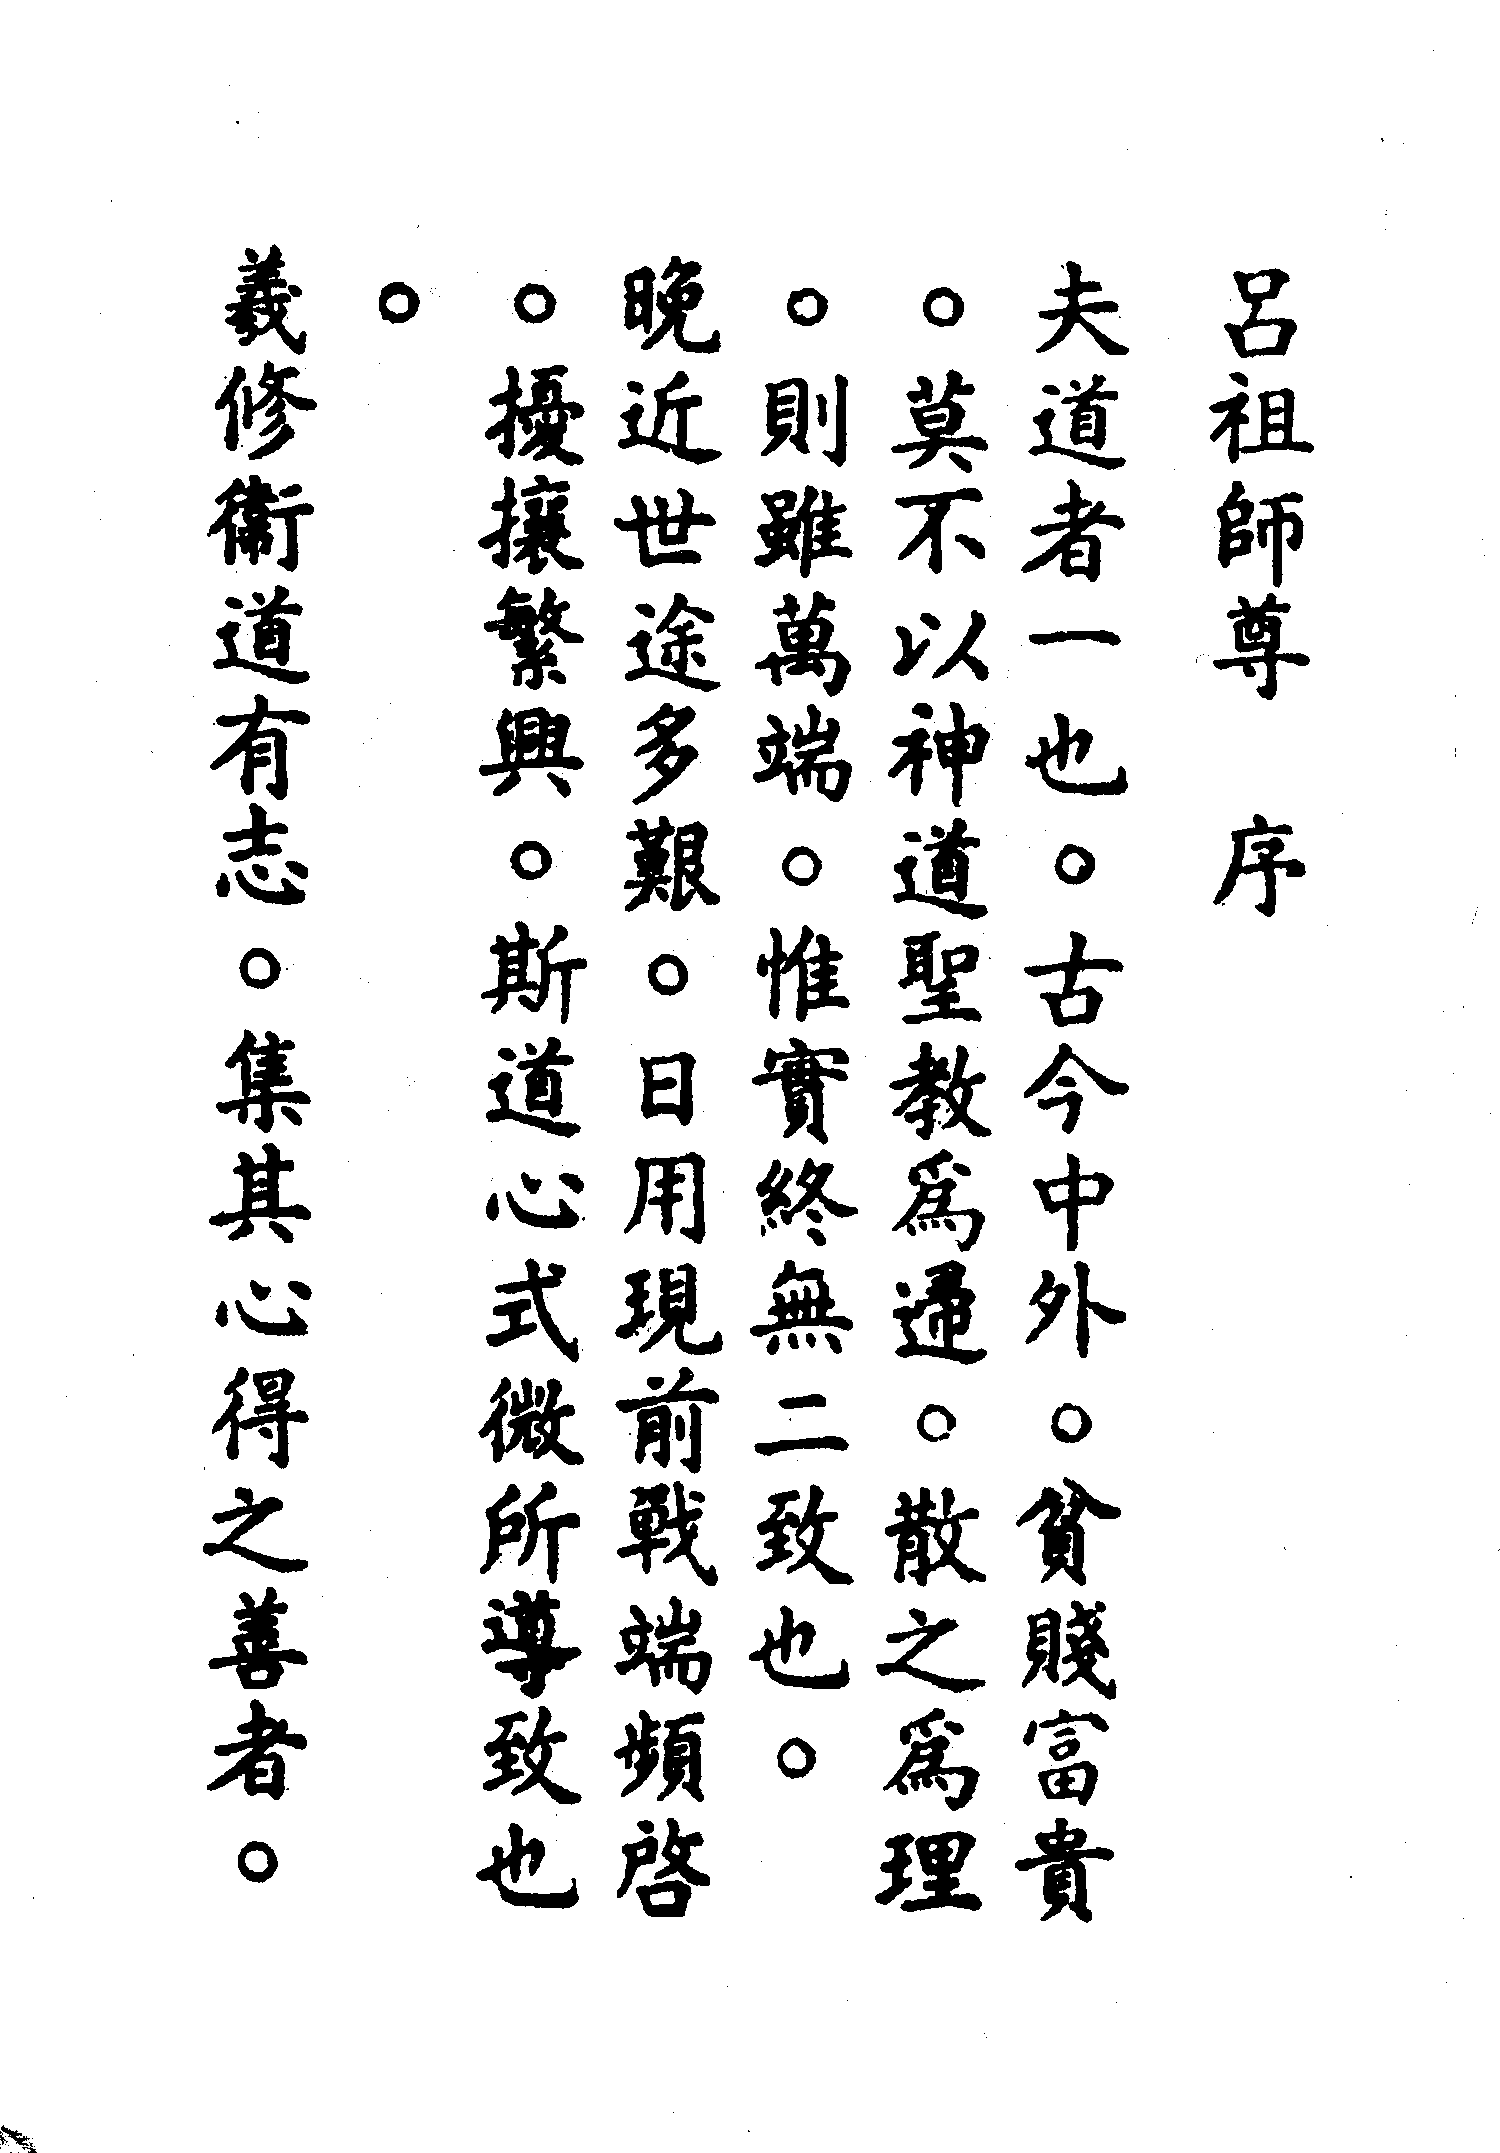 呂祖師尊　序
夫道者一也。古今中外。貧賤富貴
。莫不以神道聖教為遆。散之為理
。則雖萬端。惟實終無二致也。
晚近世途多艱。日用現前戰端頻啓
。擾攘繁興。斯道心式微所導致也
。
羲修衞道有志。集其心得之善者。